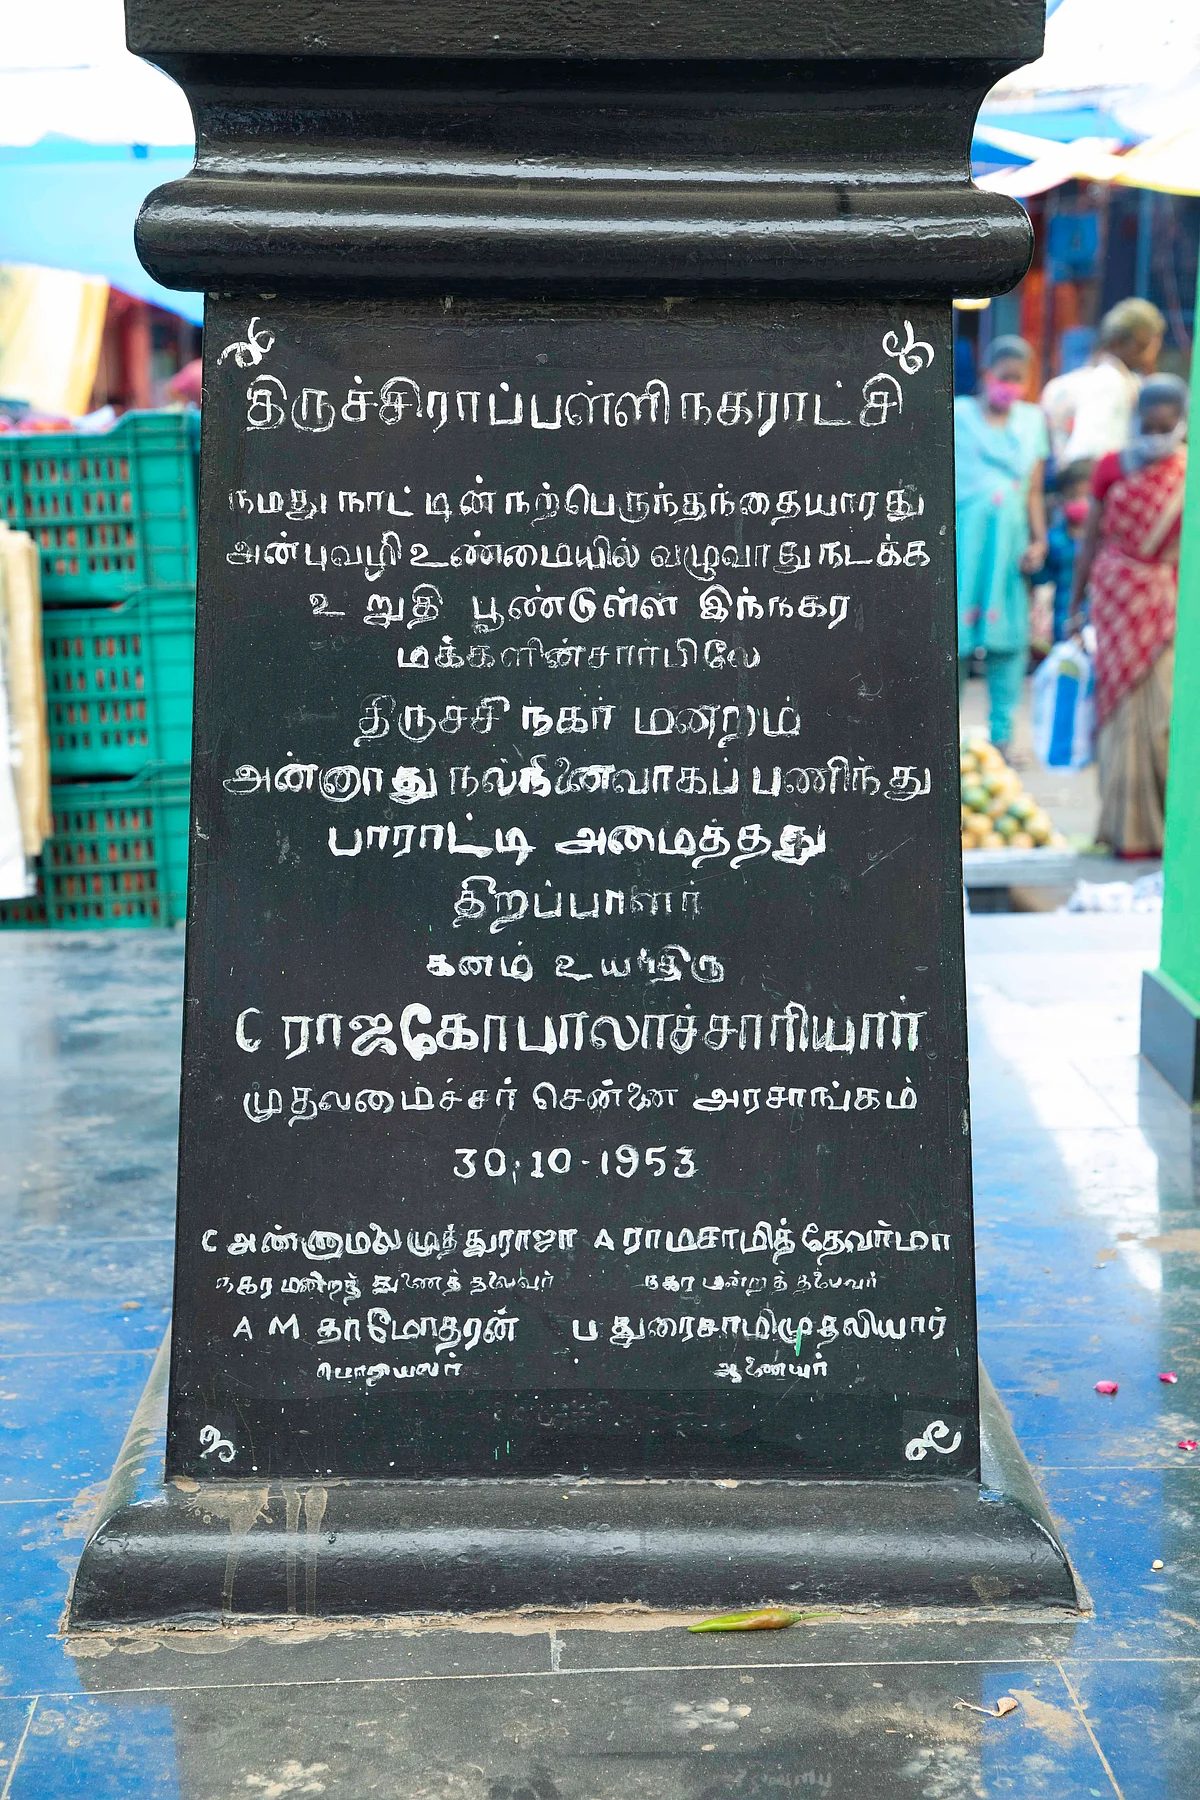 திருச்சிராப்பள்ளி நகராட்சி
நமது நாட்டின் நற்பெருந்தந்தையாரது
அன்புவழி உண்மையில் வழுவாது நடக்க
உறுதி பூண்டுள்ள இந்நகர
மக்களின் சார்பிலே
திருச்சி நகர் மன்றம்
அன்னாது நல்நினைவாகப் பணிந்து
பாராட்டி அமைத்தது
திறப்பாளர்
கனம் உயர்திரு
C ராஜகோபாலாச்சாரியார்
முதலமைச்சர் சென்னை அரசாங்கம்
30.10-1953
C அண்ணாமலை முத்துராஜா A ராமசாமித் தேவர்மா
நகர மன்றத் துணைத் தலைவர் நகர மன்றத் தலைவர்
A M தாமோதரன் ப துரைசாமிமுதலியார்
பொறியலர் ஆணையர்